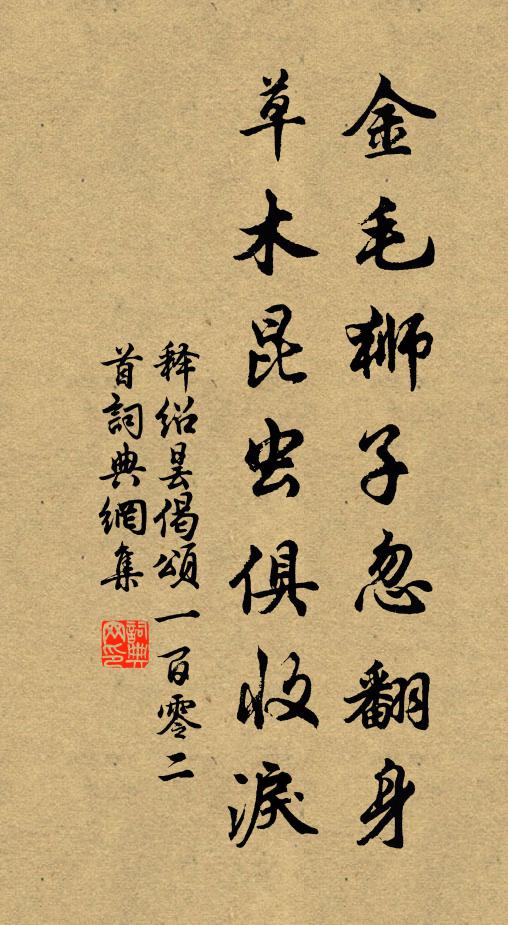 金毛狮子忽翻身
草木昆虫俱收淚
释绍昙偈頌一百零二
首詞典網集
詞典
网印